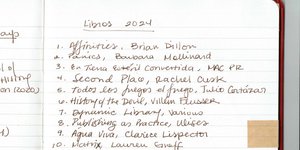 Libros 2024
1. Affinities, Brian Dillon
2. Panics, Barbara Molinard
3. En Tierra Estéril Convertida, MAC PR
4. Second Place, Rachel Cusk
5. Todos los fuegos el fuego, Julio Cortázar
6. History of the Devil, Vilém Flusser
7. Dynamic Library, Various
8. Publishing as Practice, Ulises
9. Agua Viva, Clarice Lispector
10. Matrix, Lauren Groff
of
History